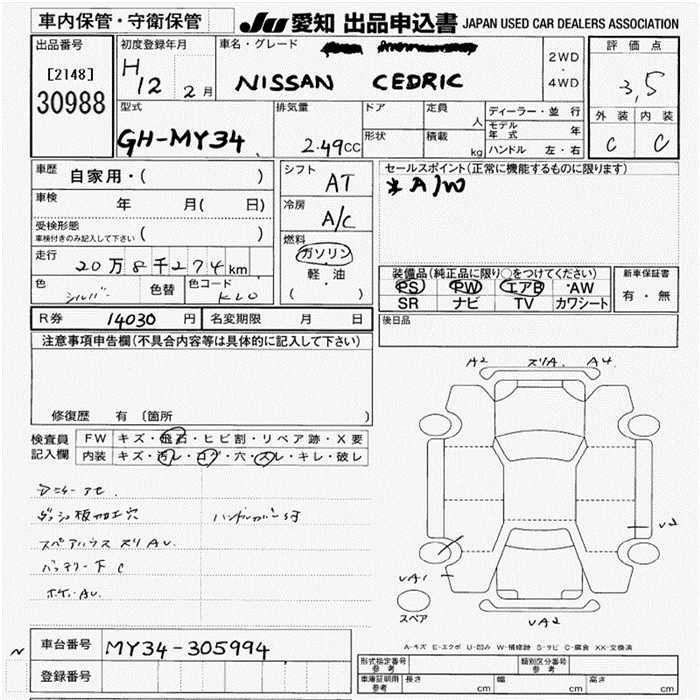 車内保管・守衛保管
JU 愛知 出品申込書 JAPAN USED CAR DEALERS ASSOCIATION
出品番号
[2148]
30988
初度登録年月
H 12 2月
車名・グレード
NISSAN CEDRIC
2WD
・
4WD
評価点
3,5
外装 内装
C C
型式
GH-MY34
排気量
2.49CC
ドア
形状
定員
人
積載
kg
ディーラー・並行
モデル年式 年
ハンドル 左・右
車歴
自家用・( )
車検
年 月( 日)
受検形態
車検付きのみ記入して下さい ( )
走行
20万8千274km
色 シルバー 色替 色コード KL0
シフト
AT
冷房
A/C
燃料
ガソリン
軽・油
( )
セールスポイント(正常に機能するものに限ります)
*A/W
装備品(純正品に限り○をつけてください)
PS PW エアB ・AW
SR ナビ TV カワシート
新車保証書
有・無
後日品
R券 14030 円 名変期限 月 日
注意事項申告欄(不具合内容等は具体的に記入して下さい)
修復歴 有 〔箇所 〕
検査員
記入欄
FW キズ・飛石・ヒビ割・リペア跡・X要
内装 キズ・汚レ・コゲ・穴・スレ・キレ・破レ
ダッシュ板加工穴
ハンドルカバー付
スペアハウス ズリ AU.
バッテリー下 C
A2 ズリA. A4.
U2
UA1
UA2
スペア
A-キズ E-エクボ U-凹み W-補修跡 S-サビ C-腐食 XX-交換済
車台番号 MY34-305994
登録番号
形式指定番号
参考
類別区分番号
参考
車庫証明用
参考
長さ cm 幅 cm 高さ cm